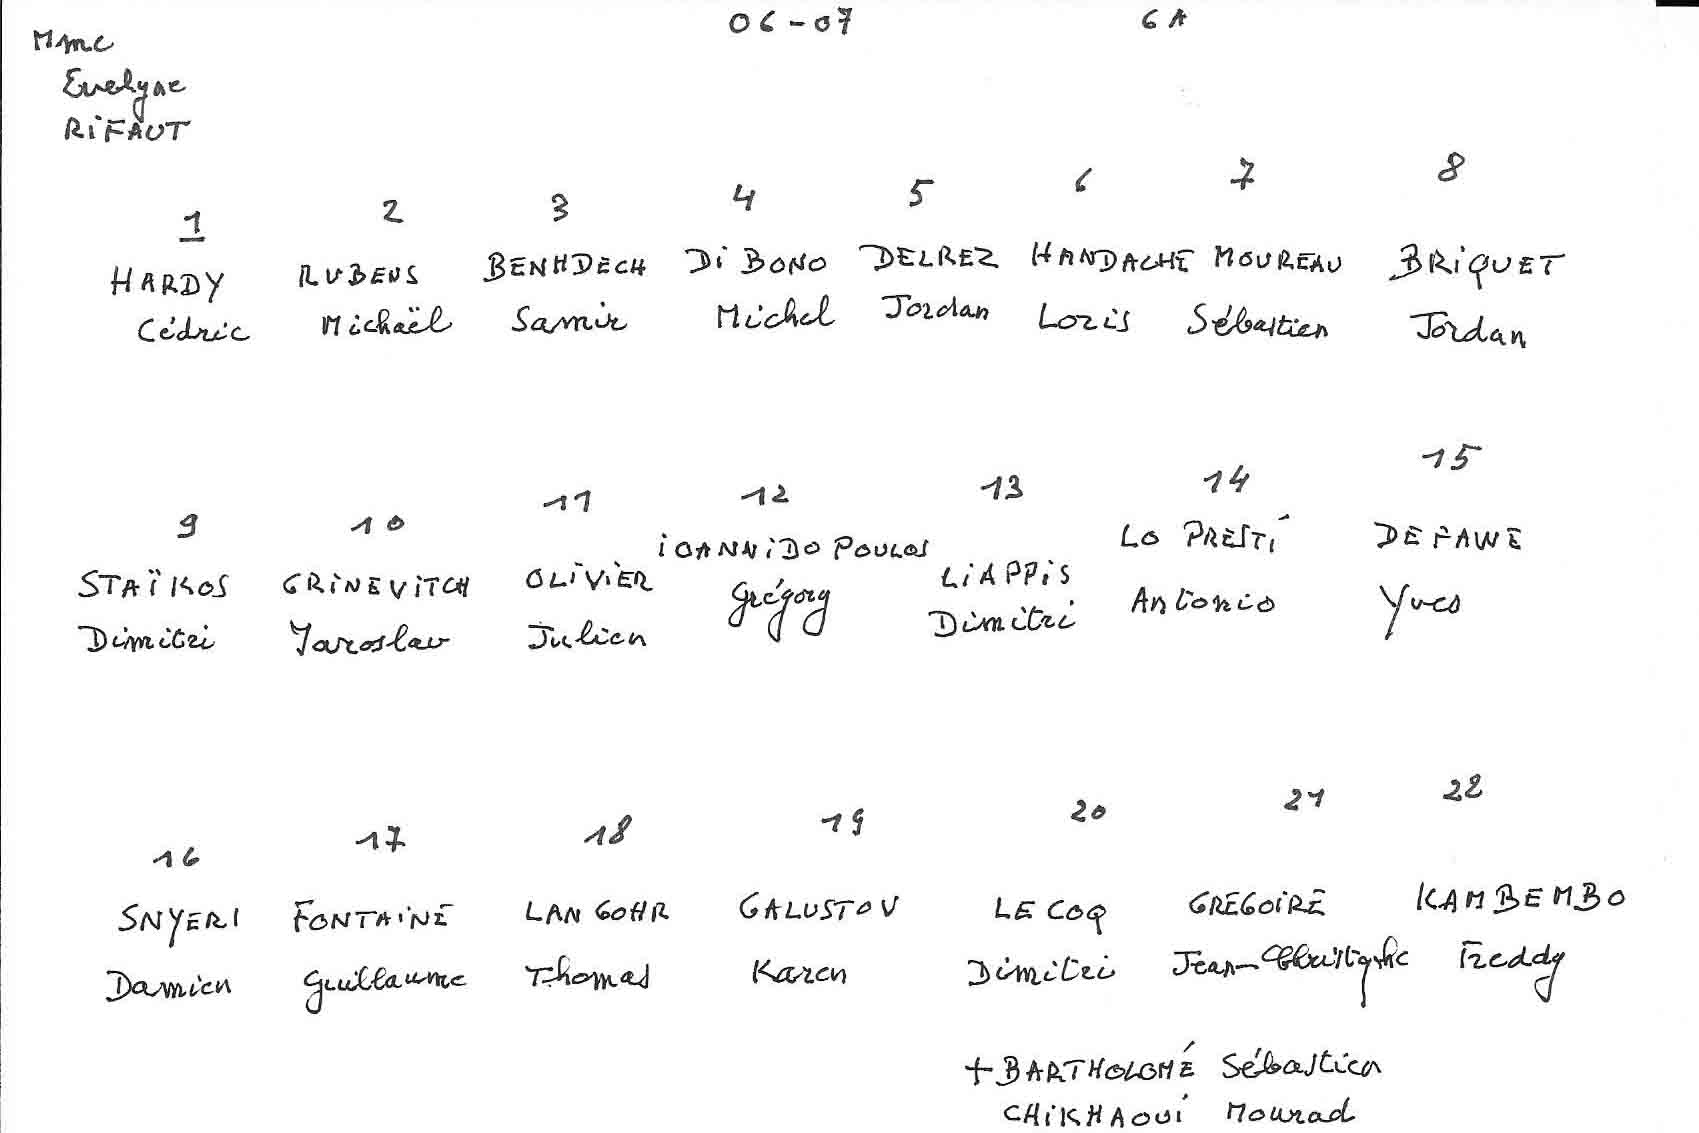 06-07 6A
Mme
Evelyne
RiFAUT
1 2 3 4 5 6 7 8
HARDY RUBENS BENHDECH Di BONO DELREZ HANDACHE MOUREAU BRiQUET
Cédric Michaël Samir Michel Jordan Loris Sébastien Jordan
9 10 11 12 13 14 15
STAÏKOS GRiNEViTCH OLiViER iOANNiDOPOULOS LiAPPiS LO PRESTi DEFAWE
Dimitri Yaroslav Julien Grégory Dimitri Antonio Yves
16 17 18 19 20 21 22
SNYERI FONTAiNE LANGOHR GALUSTOV LECOQ GREGOiRE KAMBEMBO
Damien Guillaume Thomas Karen Dimitri Jean-Christophe Freddy
+ BARTHOLOMÉ Sébastien
CHiKHAOUi Mourad